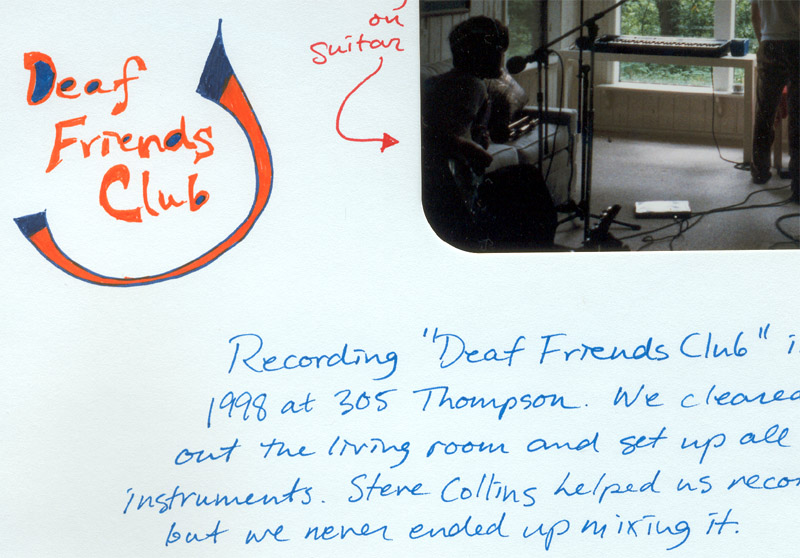 Deaf
Friends
Club
on
guitar
Recording "Deaf Friends Club" i
1998 at 305 Thompson. We cleared
out the living room and set up all
instruments. Steve Collins helped us recor
but we never ended up mixing it.